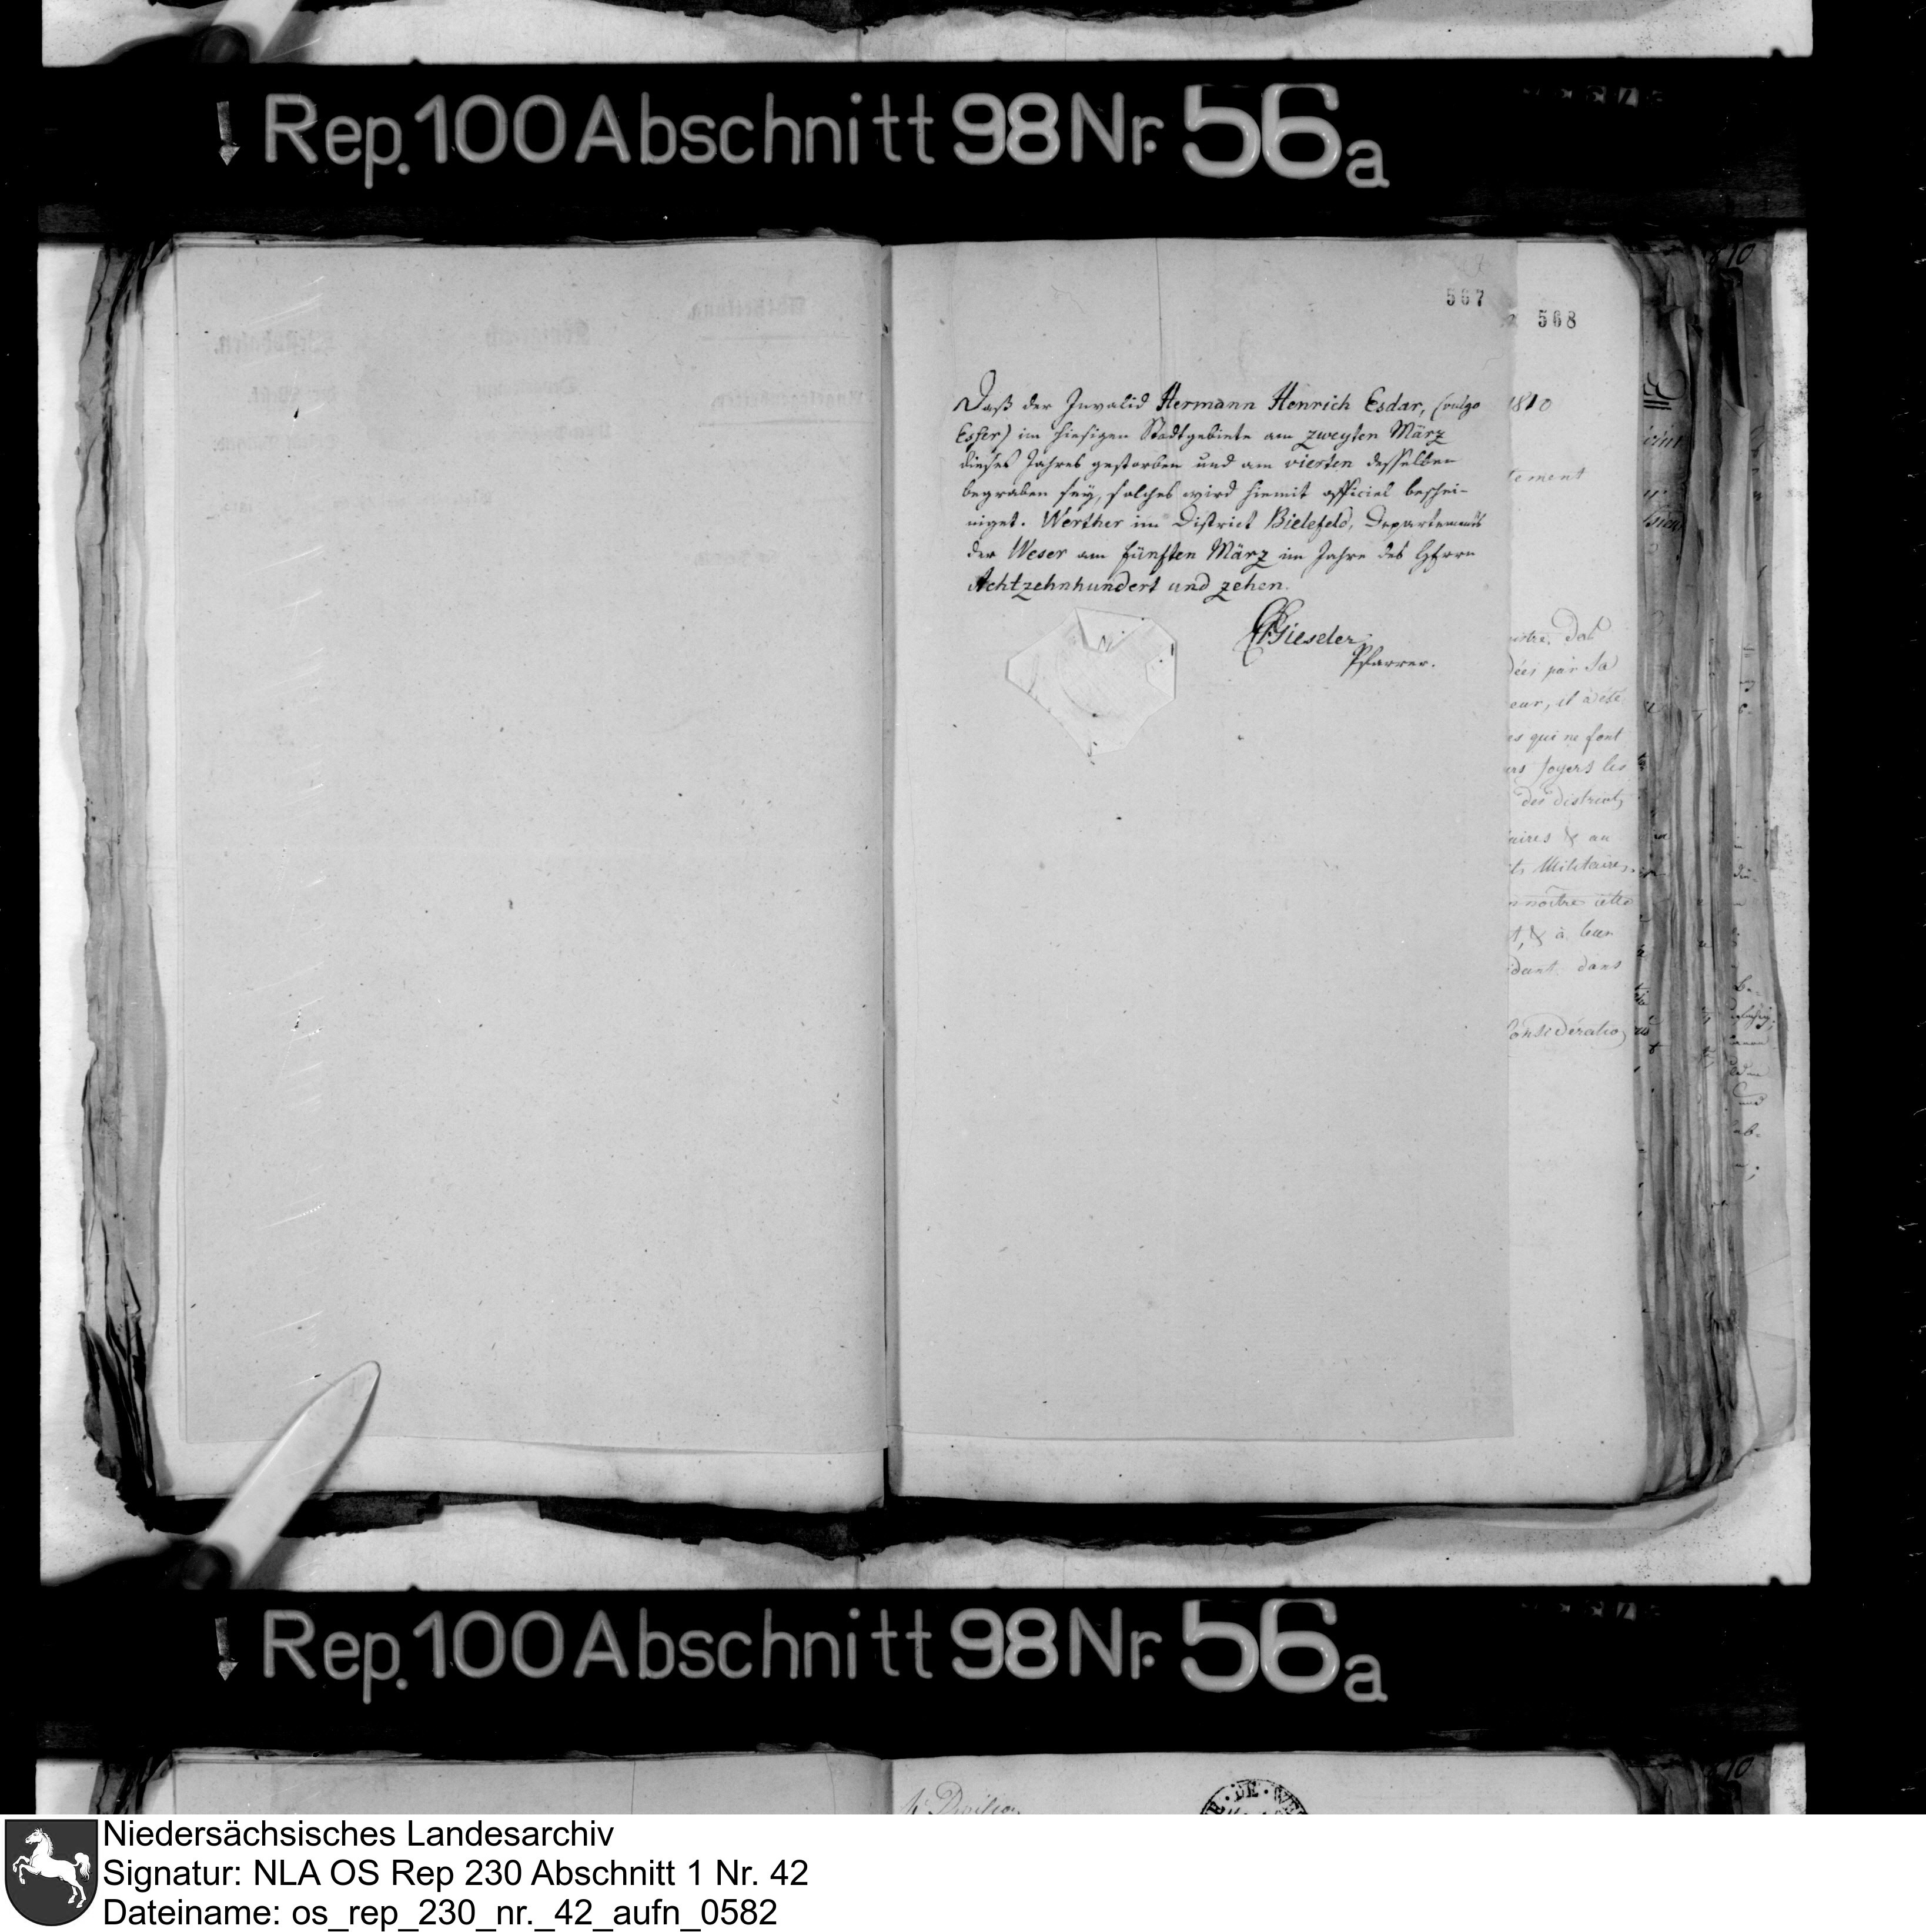 Rep. 100 Abschnitt 98 Nr. 56a
567
568
Daß der Invalid Hermann Henrich Esdar, (vulgo
Esser) im hiesigen Stadtgebiete am zweyten März
dieses Jahres gestorben und am vierten desselben
begraben sey, solches wird hiemit officiel beschei-
niget. Werther im District Bielefeld, Departements
der Weser am fünften März im Jahre des HErrn
Achtzehnhundert und zehen.
Gieseler,
Pfarrer.
1810
tement
dées par Sa
eur, il a été
es qui ne font
foyers les
des districts
aires & au
ts Militaires,
t, & à leur
dant dans
Considératio
Rep. 100 Abschnitt 98 Nr. 56a
Division
DE
Niedersächsisches Landesarchiv
Signatur: NLA OS Rep 230 Abschnitt 1 Nr. 42
Dateiname: os_rep_230_nr._42_aufn_0582